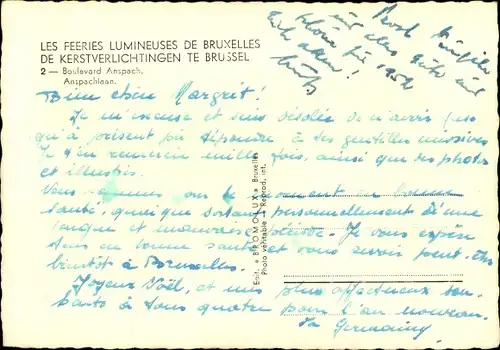 LES FEERIES LUMINEUSES DE BRUXELLES
DE KERSTVERLICHTINGEN TE BRUSSEL
2 — Boulevard Anspach.
Anspachlaan.
alles Gute und
Schöne für 1952
Euch allen!
Bien chère Margrit!
Je m'excuse et suis désolée de n'avoir pas
qu'à présent pu répondre à tes gentilles missives
Je t'en remercie mille fois, ainsi que des photos
et illustrés.
Vous sommes en ce moment en
santé, quoique sortant personnellement d'une
longue et mauvaise. Je vous espère
tous en bonne santé et vous revoir peut-être
bientôt à Bruxelles.
Joyeux Noël, et mes plus affectueux sou-
haits à tous quatre pour l'an nouveau.
ta Germaine
Edit. « BROMOLUX » Bruxelles
Photo véritable — Reprod. int.